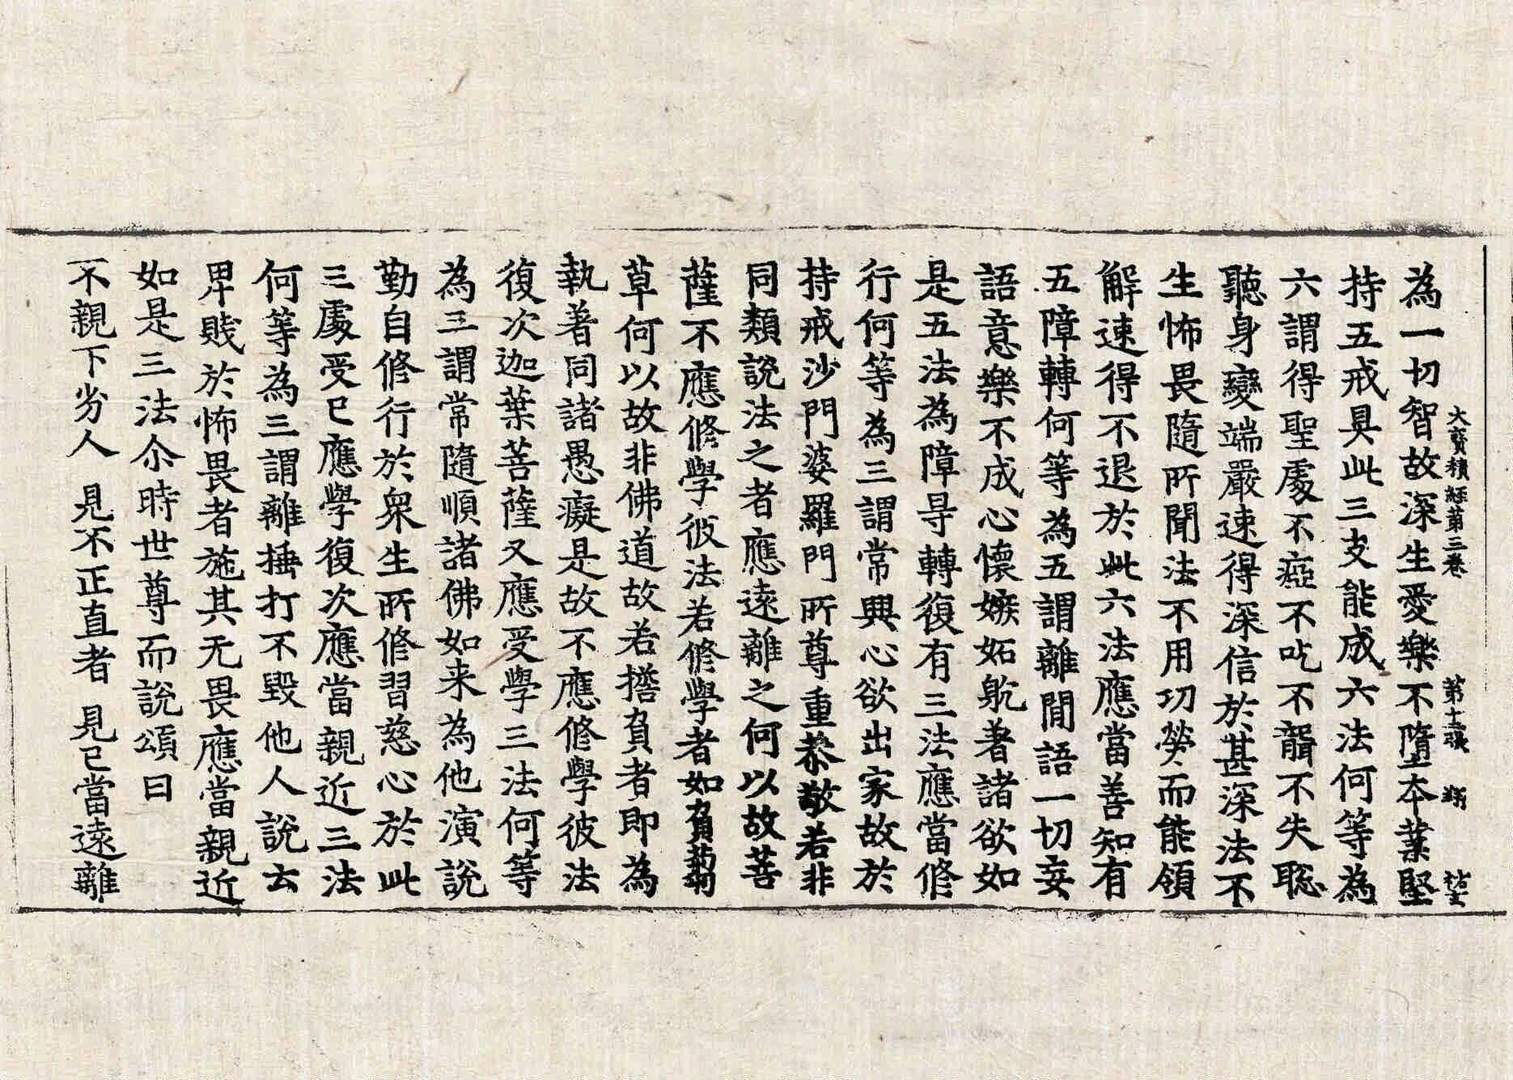 大寶積經第三卷 第十三張 翔
為一切智故深生愛樂不墮本業堅
持五戒具此三支能成六法何等為
六謂得聖處不瘂不吃不聾不失聡
聽身變端嚴速得深信於甚深法不
生怖畏隨所聞法不用功勞而能領
解速得不退於此六法應當善知有
五障轉何等為五謂離間語一切妄
語意樂不成心懷嫉妬躭著諸欲如
是五法為障㝵轉復有三法應當修
行何等為三謂常興心欲出家故於
持戒沙門婆羅門所尊重恭敬若非
同類說法之者應遠離之何以故菩
薩不應修學彼法若修學者如負蒭
草何以故非佛道故若擔負者即為
執著同諸愚癡是故不應修學彼法
復次迦葉菩薩又應受學三法何等
為三謂常隨順諸佛如来為他演說
勤自修行於衆生所修習慈心於此
三處受已應學復次應當親近三法
何等為三謂離捶打不毀他人說去
卑賤於怖畏者施其无畏應當親近
如是三法尒時世尊而說頌曰
不親下劣人 見不正直者 見已當遠離